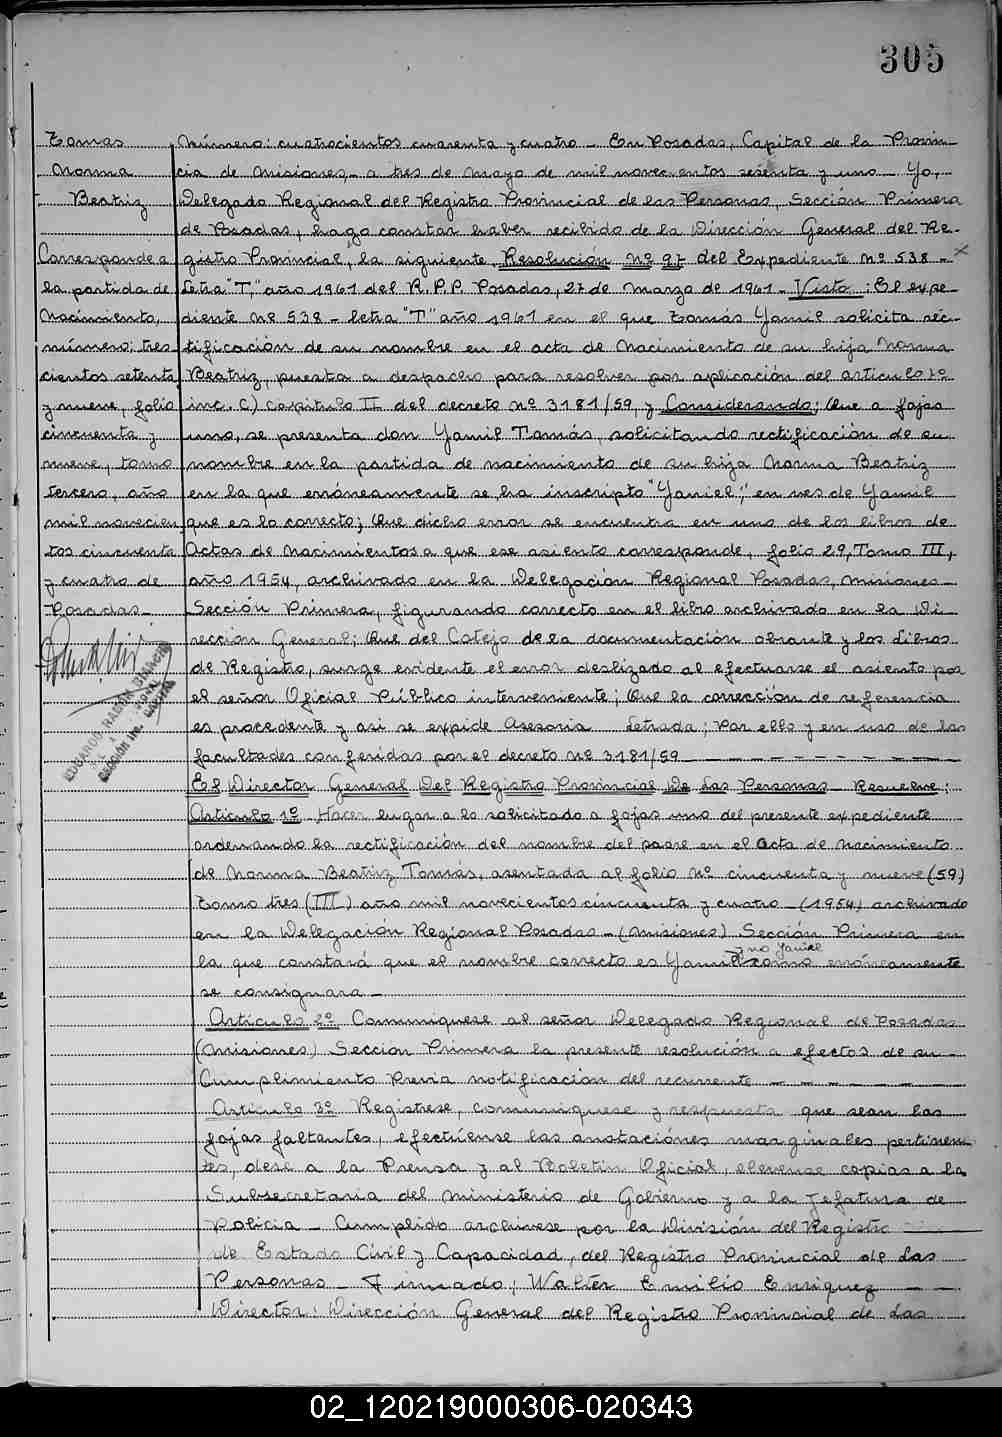 305
Tomas
Norma
Beatriz
Corresponde a
la partida de
Nacimiento,
número; tres
cientos setenta
y nueve, folio
cincuenta y
nueve, tomo
tercero, año
mil novecien
tos cincuenta
y cuatro de
Posadas-
EDUARDO RAMON
SECCION 1ra.
CAPITAL
Número: cuatrocientos cuarenta y cuatro - En Posadas, Capital de la Provin-
cia de Misiones,- a tres de Mayo de mil novecientos sesenta y uno - Yo,-
Delegado Regional del Registro Provincial de las Personas, Sección Primera
de Posadas, hago constar haber recibido de la Dirección General del Re-
gistro Provincial, la siguiente, Resolución Nº 97 del Expediente Nº 538- x
Letra "T", año 1961 del R.P.P. Posadas, 27 de Marzo de 1961- Visto: El expe-
diente Nº 538- letra "T" año 1961 en el que Tomás Yamil solicita réc-
tificación de su nombre en el acta de Nacimiento de su hija Norma
Beatriz, puesta a despacho para resolver por aplicación del artículo 1º
inc. C) Capítulo II del decreto Nº 3181/59, y Considerando: Que a fojas
uno, se presenta don Yamil Tomás, solicitando rectificación de su
nombre en la partida de nacimiento de su hija Norma Beatriz
en la que erróneamente se ha inscripto "Yaniel", en ves de Yamil
que es lo correcto; Que dicho error se encuentra en uno de los libros de
Actas de Nacimientos a que ese asiento corresponde, folio 29, Tomo III,
año 1954, archivado en la Delegación Regional Posadas, Misiones-
Sección Primera, figurando correcto en el libro archivado en la Di
rección General; Que del Cotejo de la documentación obrante y los Libros
de Registro, surge evidente el error deslizado al efectuarse el asiento por
el señor Oficial Público interveniente; Que la corrección de referencia
es procedente y asi se expide Asesoria Letrada; Por ello y en uso de las
facultades conferidas por el decreto Nº 3181/59
El Director General Del Registro Provincial De Las Personas - Resuelve:
Artículo 1º Hacer lugar a lo solicitado a fojas uno del presente expediente
ordenando la rectificación del nombre del padre en el Acta de Nacimiento
de Norma Beatriz Tomás, asentada al folio Nº cincuenta y nueve (59)
Tomo tres (III) año mil novecientos cincuenta y cuatro - (1954) archivado
en la Delegación Regional Posadas - (Misiones) Sección Primera en
y no Yaniel
la que constará que el nombre correcto es Yamil como erróneamente
se consignara -
Artículo 2º Comuniquese al señor Delegado Regional de Posadas
(Misiones) Sección Primera la presente resolución a efectos de su -
Cumplimiento Previa notificación del recurrente
Artículo 3º Registrese, comuniquese y respuesta que sean las
fojas faltantes, efectúense las anotaciónes marginales pertinen-
tes, dese a la Prensa y al Boletin Oficial, elevense copias a la
Subsecretaria del Ministerio de Gobierno y a la Jefatura de
Policia - Cumplido archivese por la División del Registro
de Estado Civil y Capacidad, del Registro Provincial de las
Personas - Firmado; Walter Emilio Enriquez
Director: Dirección General del Registro Provinsial de las
02_120219000306-020343